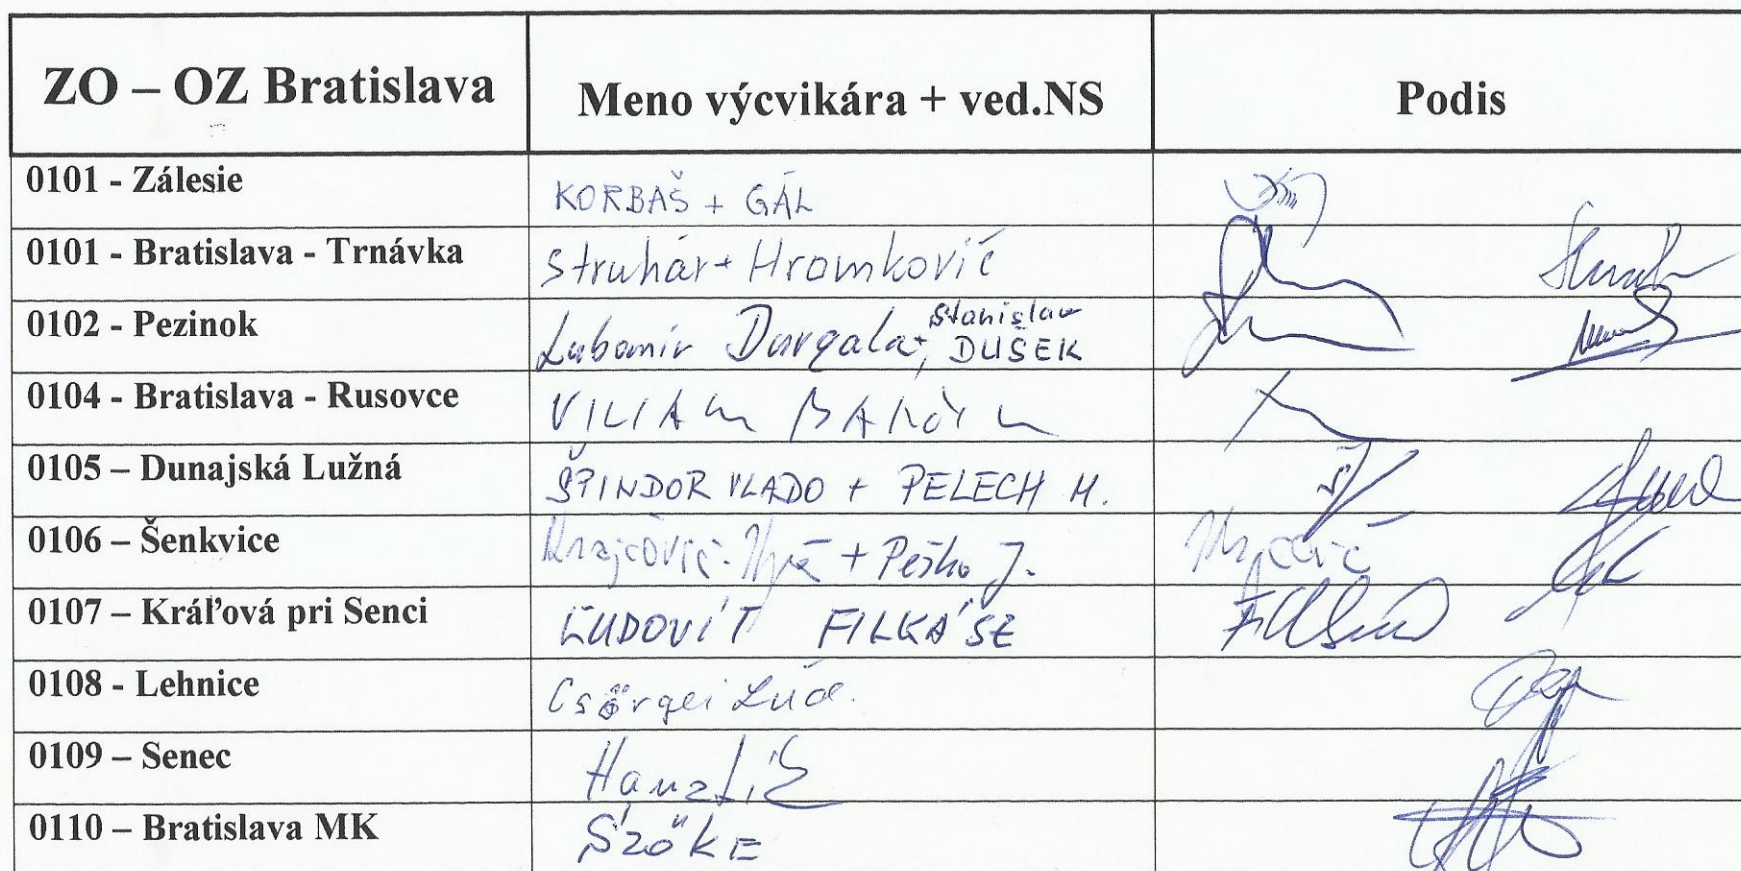 ZO – OZ Bratislava Meno výcvikára + ved.NS Podis
0101 - Zálesie KORBAŠ + GÁL
0101 - Bratislava - Trnávka Struhár + Hromkovič
0102 - Pezinok Ľubomír Dargala, Stanislav DUŠEK
0104 - Bratislava - Rusovce VILIAM
0105 – Dunajská Lužná ŠPINDOR VLADO + PELECH M.
0106 – Šenkvice Krajčovič + Peško J.
0107 – Kráľová pri Senci ĽUDOVÍT FILKÁSE
0108 - Lehnice Csörgei Lud.
0109 – Senec Hanzlík
0110 – Bratislava MK SZŐKE